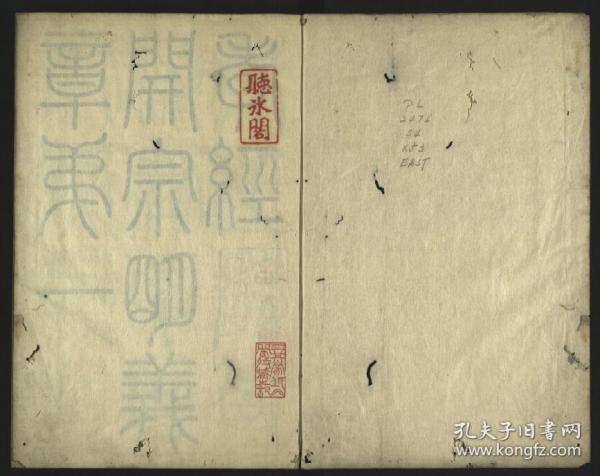 孝經
開宗明義
章弟一
聽冰閣
PL
2476
EAST
孔夫子旧书网
www.kongfz.com